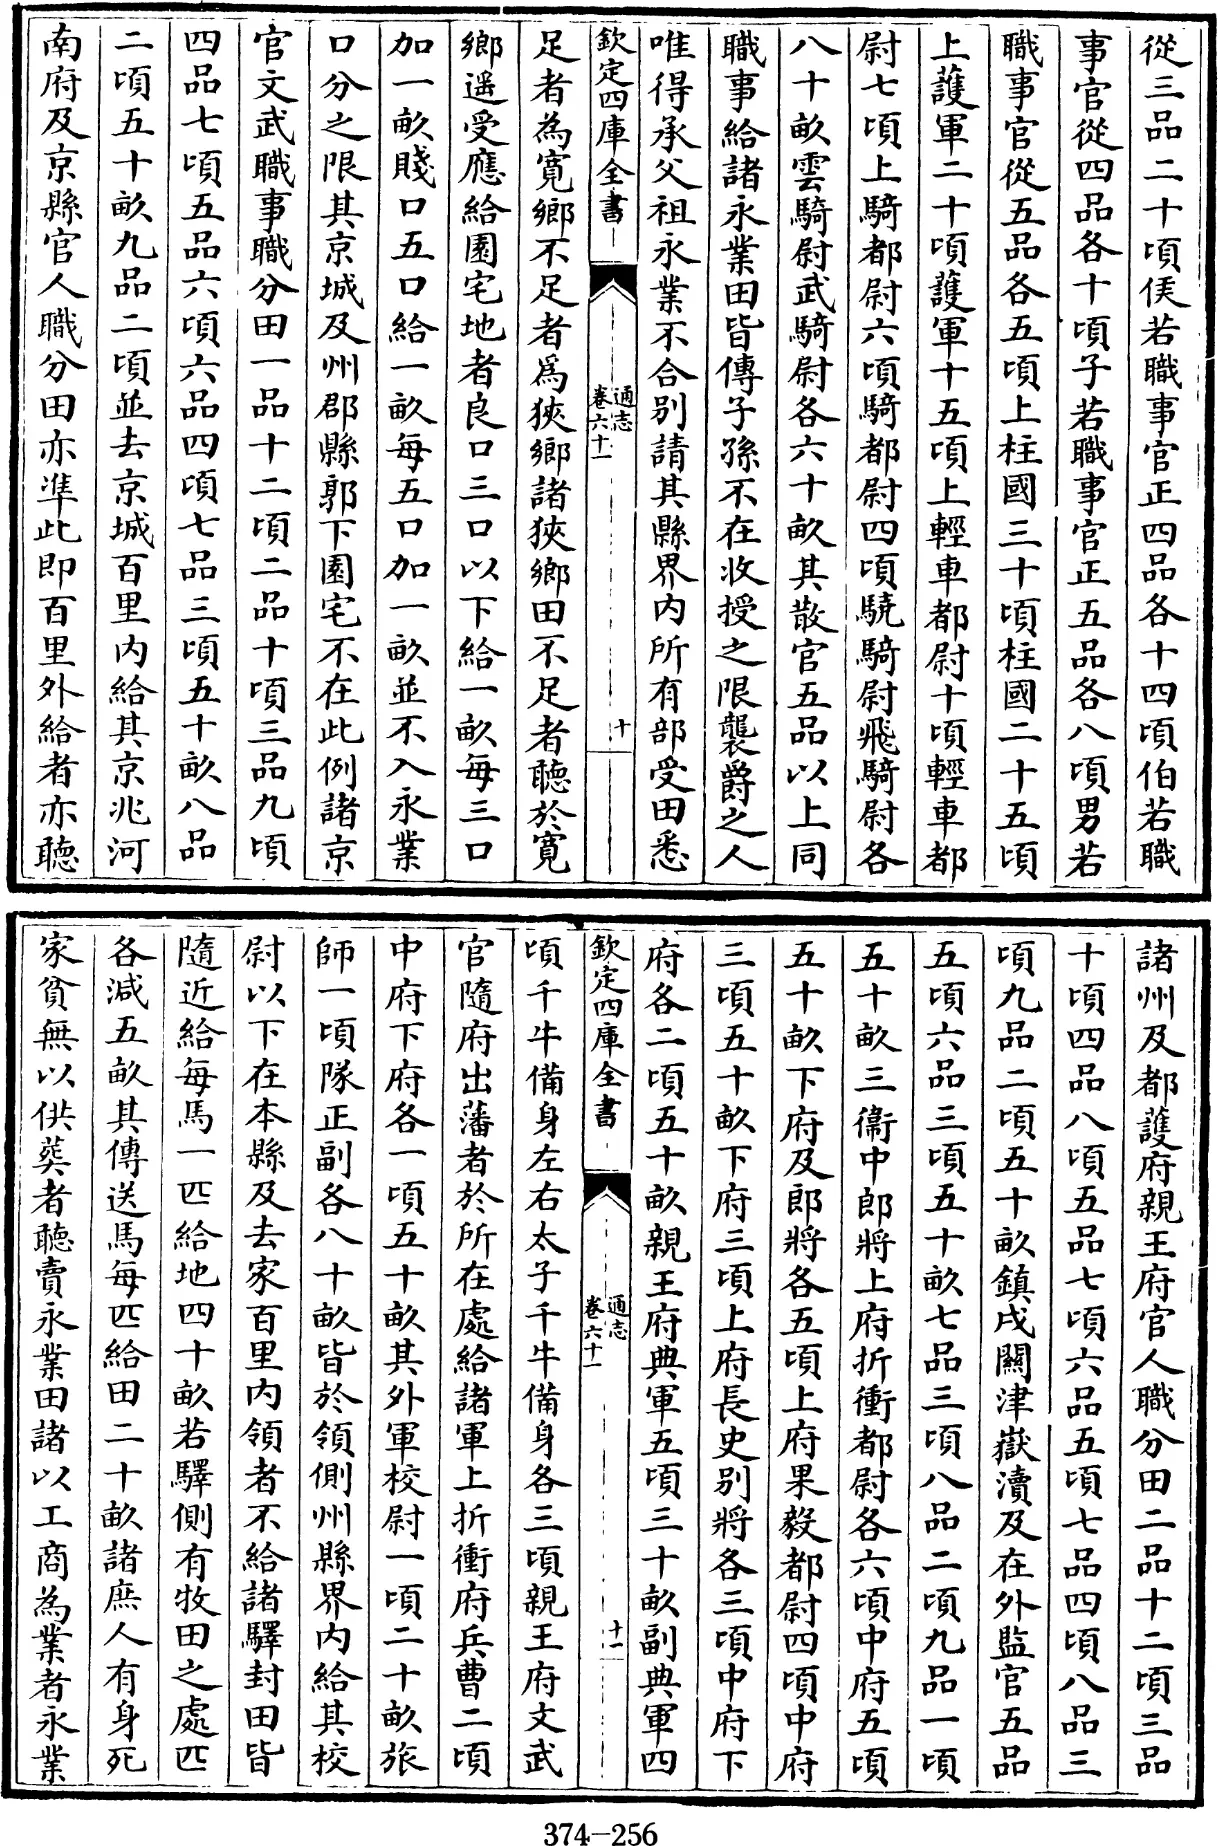 從三品二十頃侯若職事官正四品各十四頃伯若職
事官從四品各十頃子若職事官正五品各八頃男若
職事官從五品各五頃上柱國三十頃柱國二十五頃
上護軍二十頃護軍十五頃上輕車都尉十頃輕車都
尉七頃上騎都尉六頃騎都尉四頃驍騎尉飛騎尉各
八十畝雲騎尉武騎尉各六十畝其散官五品以上同
職事給諸永業田皆傳子孫不在收授之限襲爵之人
唯得承父祖永業不合別請其縣界內所有部受田悉
欽定四庫全書
通志
卷六十一
十
足者為寛鄉不足者爲狹鄉諸狹鄉田不足者聽於寛
鄉遥受應給園宅地者良口三口以下給一畝每三口
加一畝賤口五口給一畝每五口加一畝並不入永業
口分之限其京城及州郡縣郭下園宅不在此例諸京
官文武職事職分田一品十二頃二品十頃三品九頃
四品七頃五品六頃六品四頃七品三頃五十畝八品
二頃五十畝九品二頃並去京城百里內給其京兆河
南府及京縣官人職分田亦準此即百里外給者亦聽
諸州及都護府親王府官人職分田二品十二頃三品
十頃四品八頃五品七頃六品五頃七品四頃八品三
頃九品二頃五十畝鎮戍關津嶽瀆及在外監官五品
五頃六品三頃五十畝七品三頃八品二頃九品一頃
五十畝三衞中郎將上府折衝都尉各六頃中府五頃
五十畝下府及郎將各五頃上府果毅都尉四頃中府
三頃五十畝下府三頃上府長史別將各三頃中府下
府各二頃五十畝親王府典軍五頃三十畝副典軍四
欽定四庫全書
通志
卷六十一
十一
頃千牛備身左右太子千牛備身各三頃親王府文武
官隨府出藩者於所在處給諸軍上折衝府兵曹二頃
中府下府各一頃五十畝其外軍校尉一頃二十畝旅
師一頃隊正副各八十畝皆於領側州縣界內給其校
尉以下在本縣及去家百里內領者不給諸驛封田皆
隨近給每馬一匹給地四十畝若驛側有牧田之處匹
各減五畝其傳送馬每匹給田二十畝諸庶人有身死
家貧無以供葬者聽賣永業田諸以工商為業者永業
374-256